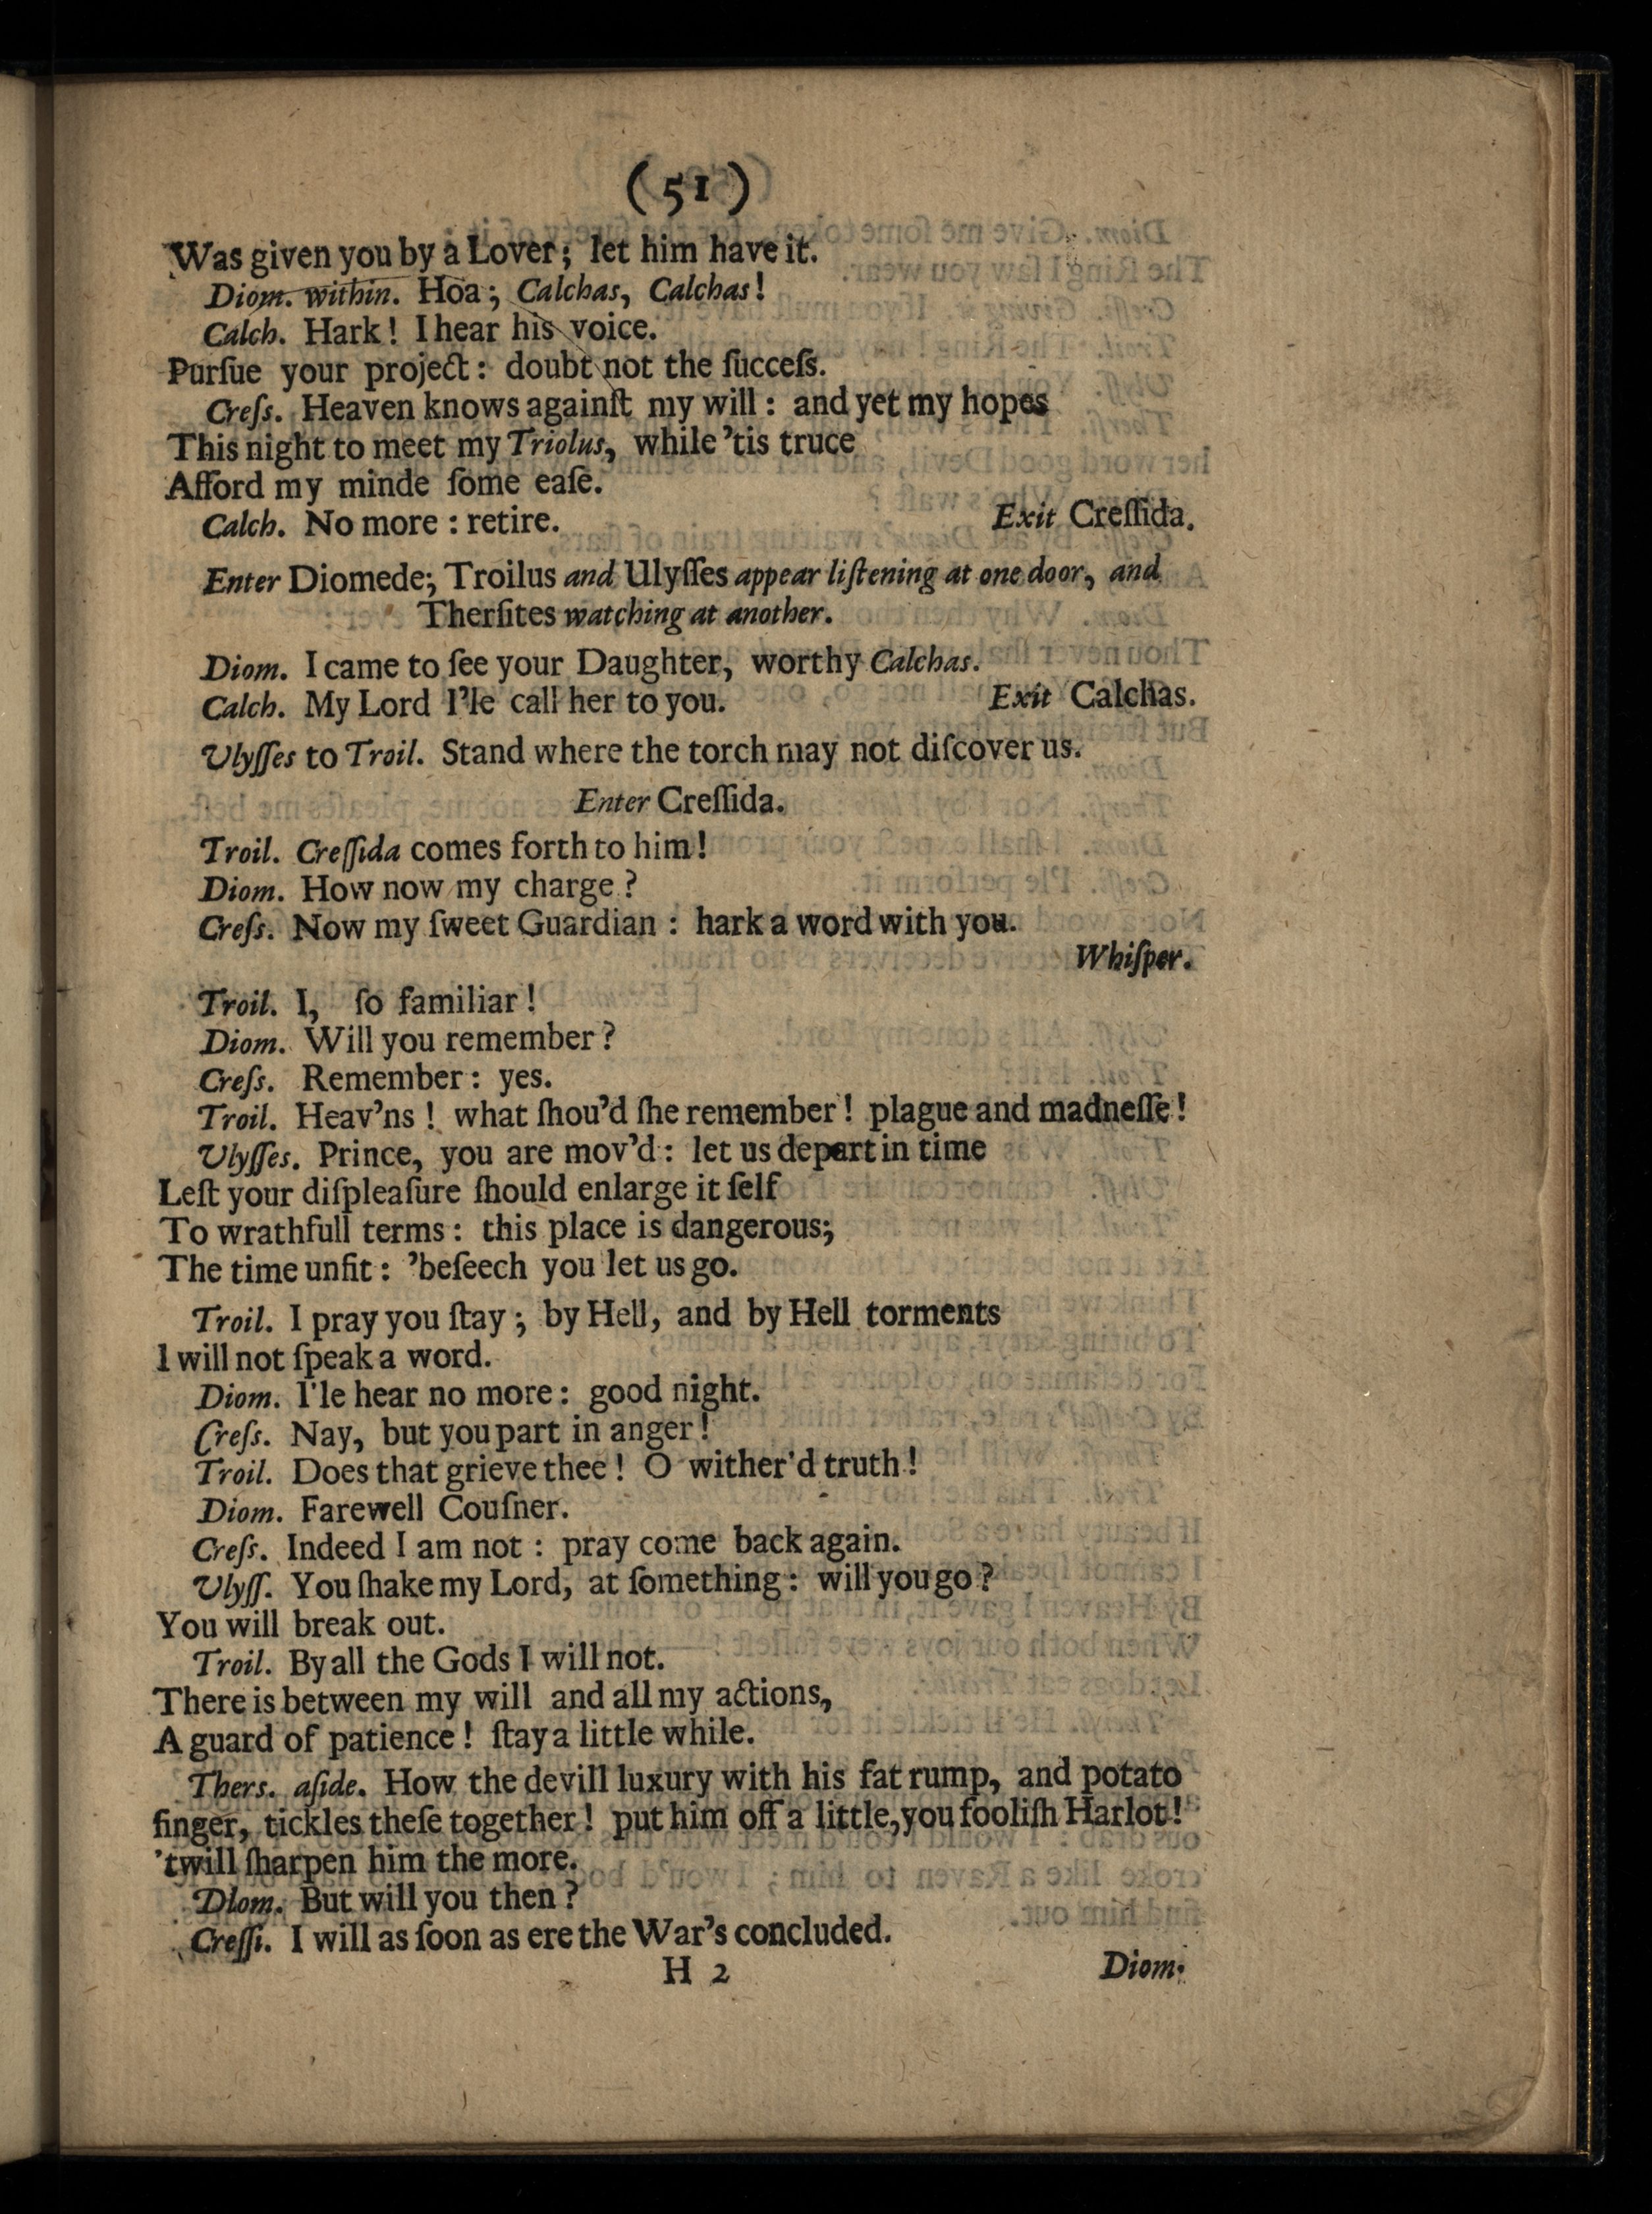 (51)
Was given you by a Lover; let him have it.
Diom. within. Hoa; Calchas, Calchas!
Calch. Hark! I hear his voice.
Purſue your project: doubt not the ſucceſs.
Creſs. Heaven knows againſt my will: and yet my hopes
This night to meet my Triolus, while 'tis truce
Afford my minde ſome eaſe.
Calch. No more: retire. Exit Creſſida.
Enter Diomede; Troilus and Ulyſſes appear liſtening at one door, and
Therſites watching at another.
Diom. I came to ſee your Daughter, worthy Calchas.
Calch. My Lord I'le call her to you. Exit Calchas.
Ulyſſes to Troil. Stand where the torch may not diſcover us.
Enter Creſſida.
Troil. Creſſida comes forth to him!
Diom. How now my charge?
Creſs. Now my ſweet Guardian: hark a word with you.
Whiſper.
Troil. I, ſo familiar!
Diom. Will you remember?
Creſs. Remember: yes.
Troil. Heav'ns! what ſhou'd ſhe remember! plague and madneſſe!
Ulyſſes. Prince, you are mov'd: let us depart in time
Leſt your diſpleaſure ſhould enlarge it ſelf
To wrathfull terms: this place is dangerous;
The time unfit: 'beſeech you let us go.
Troil. I pray you ſtay; by Hell, and by Hell torments
I will not ſpeak a word.
Diom. I'le hear no more: good night.
Creſs. Nay, but you part in anger!
Troil. Does that grieve thee! O wither'd truth!
Diom. Farewell Couſner.
Creſs. Indeed I am not: pray come back again.
Ulyſſ. You ſhake my Lord, at ſomething: will you go?
You will break out.
Troil. By all the Gods I will not.
There is between my will and all my actions,
A guard of patience! ſtay a little while.
Thers. aſide. How the devill luxury with his fat rump, and potato
finger, tickles theſe together! put him off a little, you fooliſh Harlot!
'twill ſharpen him the more.
Dlom. But will you then?
Creſſi. I will as ſoon as ere the War's concluded.
H 2 Diom.